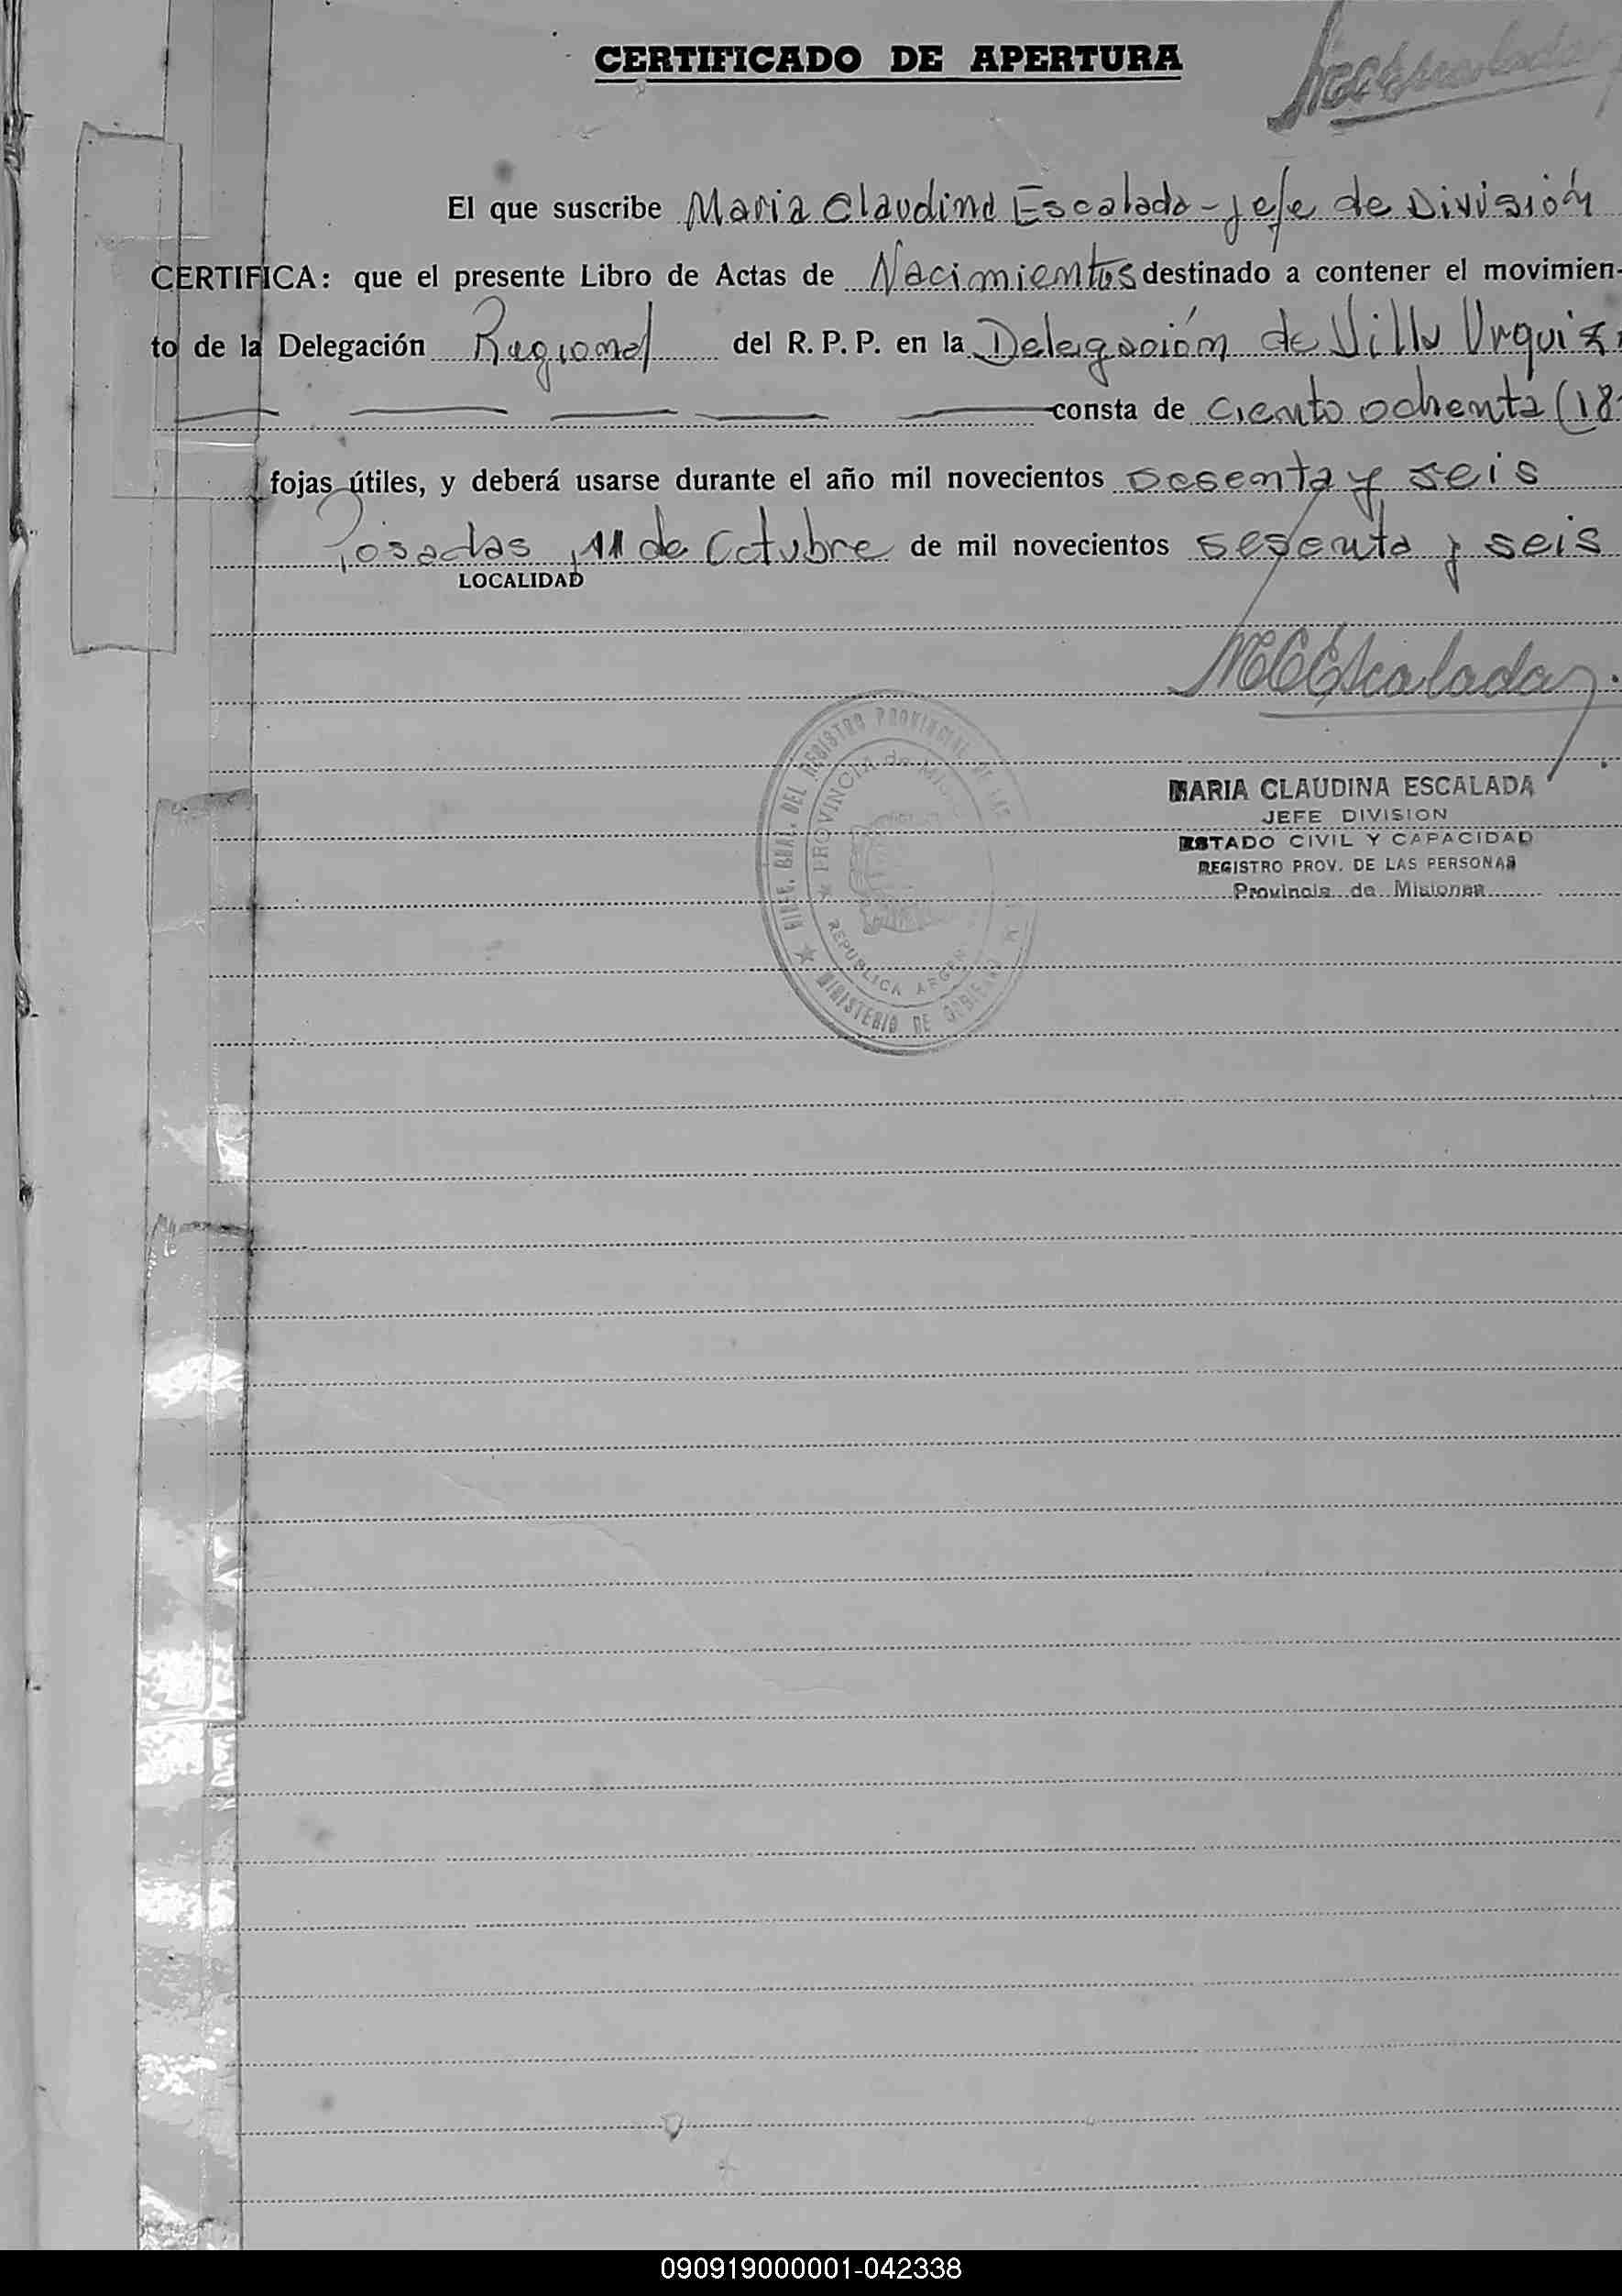 CERTIFICADO DE APERTURA
El que suscribe Maria Claudina Escalada - jefe de División
CERTIFICA: que el presente Libro de Actas de Nacimientos destinado a contener el movimien-
to de la Delegación Regional del R. P. P. en la Delegación de Villa Urquiz
consta de ciento ochenta (18
fojas útiles, y deberá usarse durante el año mil novecientos sesenta y seis
Posadas, 11 de Octubre de mil novecientos sesenta y seis
LOCALIDAD
MCEscalada
MARIA CLAUDINA ESCALADA
JEFE DIVISION
ESTADO CIVIL Y CAPACIDAD
REGISTRO PROV. DE LAS PERSONAS
Provincia de Misiones
DIREC. GRAL. DEL REGISTRO PROVINCIAL DE LAS
PROVINCIA de MISI
REPUBLICA ARGEN
MINISTERIO DE GOBIERNO
090919000001-042338